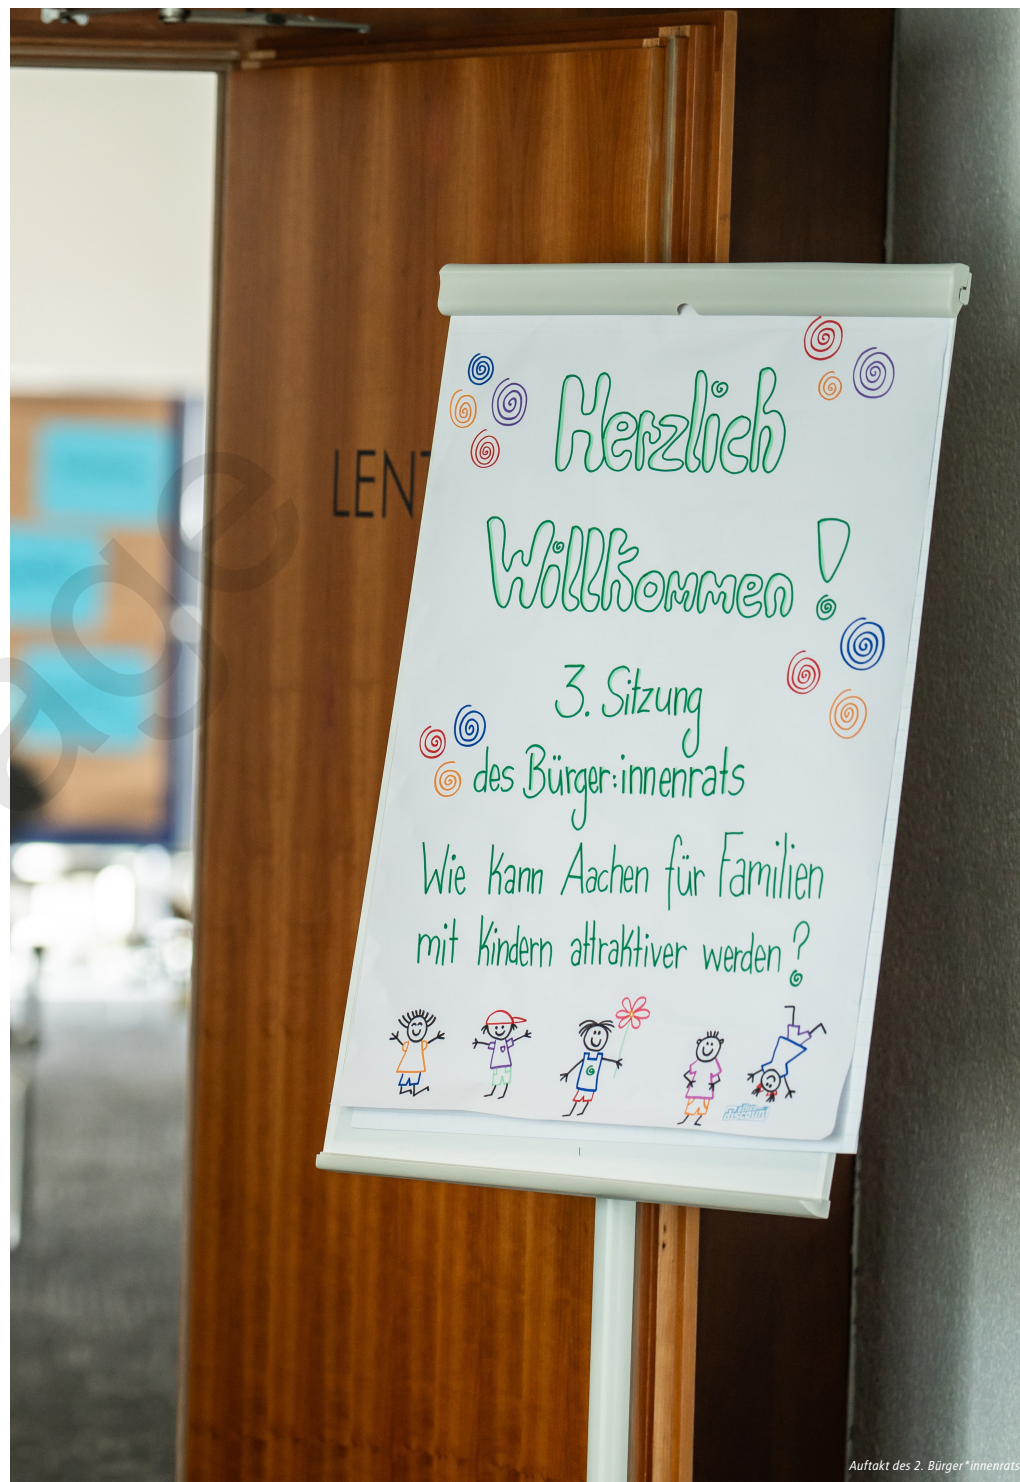 LENT
Herzlich
Willkommen!
3. Sitzung
des Bürger:innenrats
Wie kann Aachen für Familien
mit Kindern attraktiver werden?
discount
Auftakt des 2. Bürger*innenrats
age